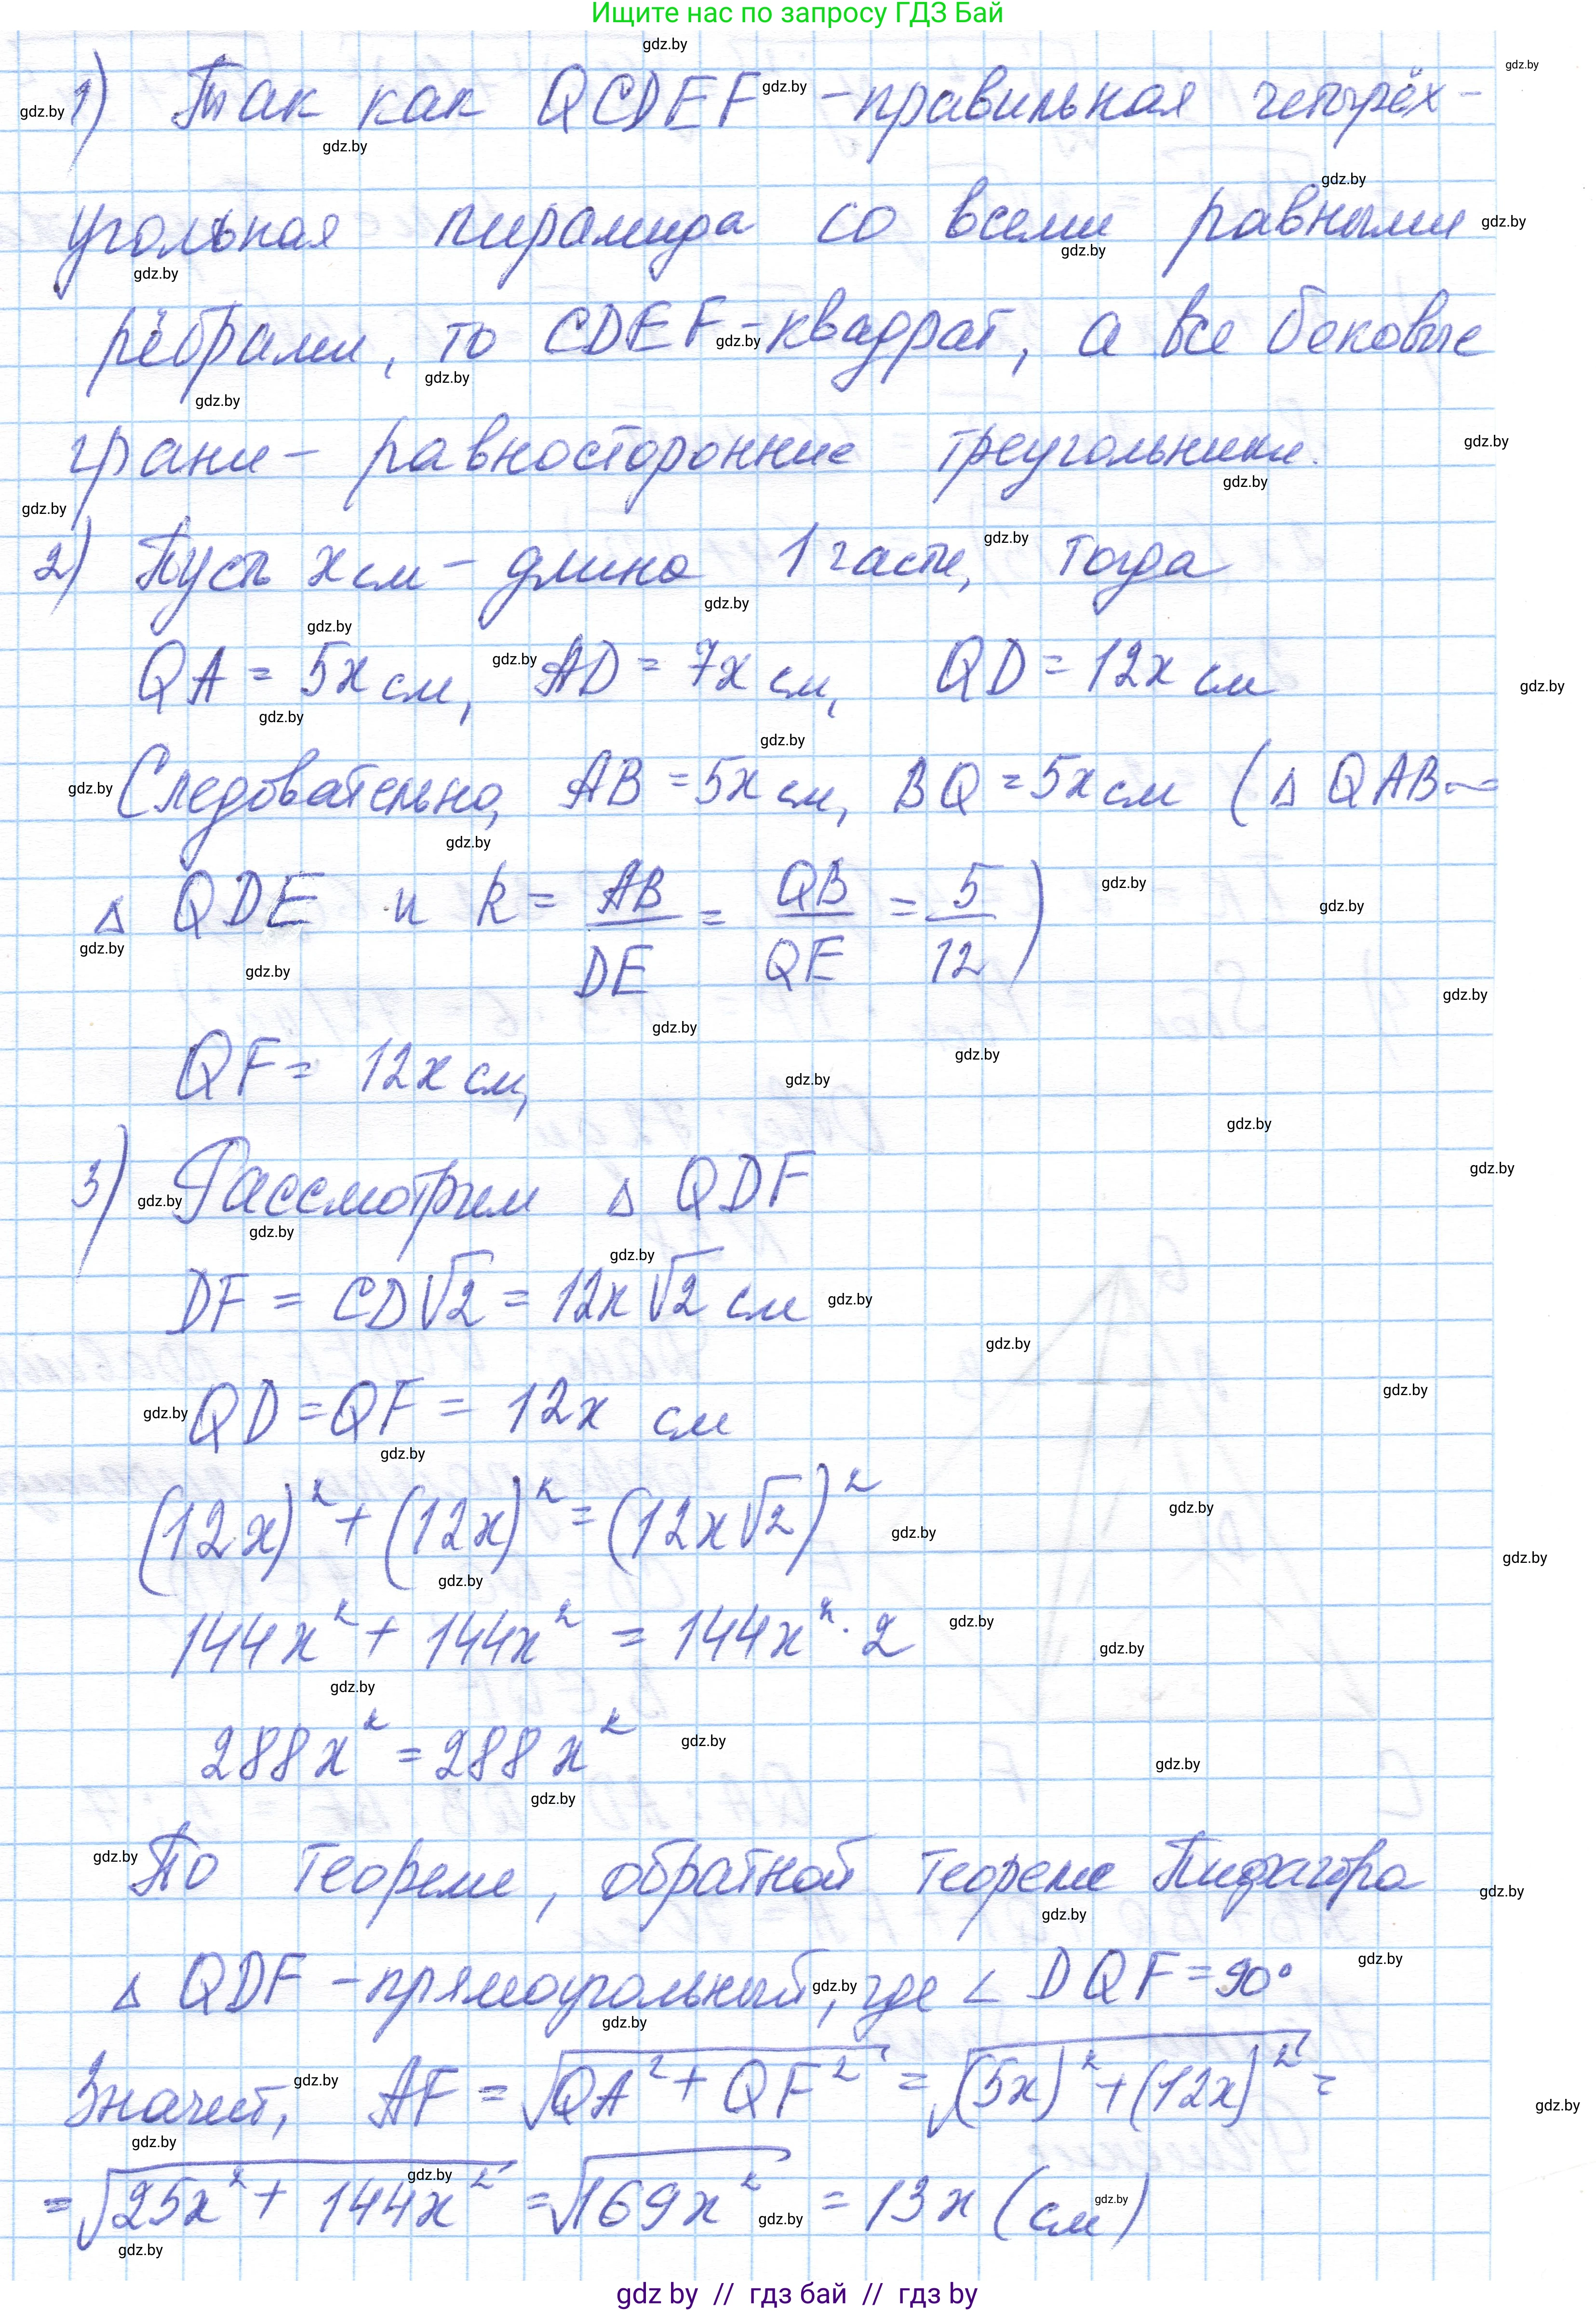 Ищите нас по запросу ГДЗ Бай
1) Так как QCDEF - правильная четырёх-
угольная пирамида со всеми равными
рёбрами, то CDEF - квадрат, а все боковые
грани - равносторонние треугольники.
2) Пусть x см - длина 1 части, тогда
QA = 5x см, AD = 7x см, QD = 12x см
Следовательно, AB = 5x см, BQ = 5x см (△ QAB ~
△ QDE и k = AB/DE = QB/QE = 5/12)
QF = 12x см,
3) Рассмотрим △ QDF
DF = CD√2 = 12x√2 см
QD = QF = 12x см
(12x)² + (12x)² = (12x√2)²
144x² + 144x² = 144x² · 2
288x² = 288x²
По теореме, обратной теореме Пифагора
△ QDF - прямоугольный, где ∠ DQF = 90°
Значит, AF = √(QA² + QF²) = √((5x)² + (12x)²) =
= √(25x² + 144x²) = √(169x²) = 13x (см)
gdz by // гдз бай // гдз by